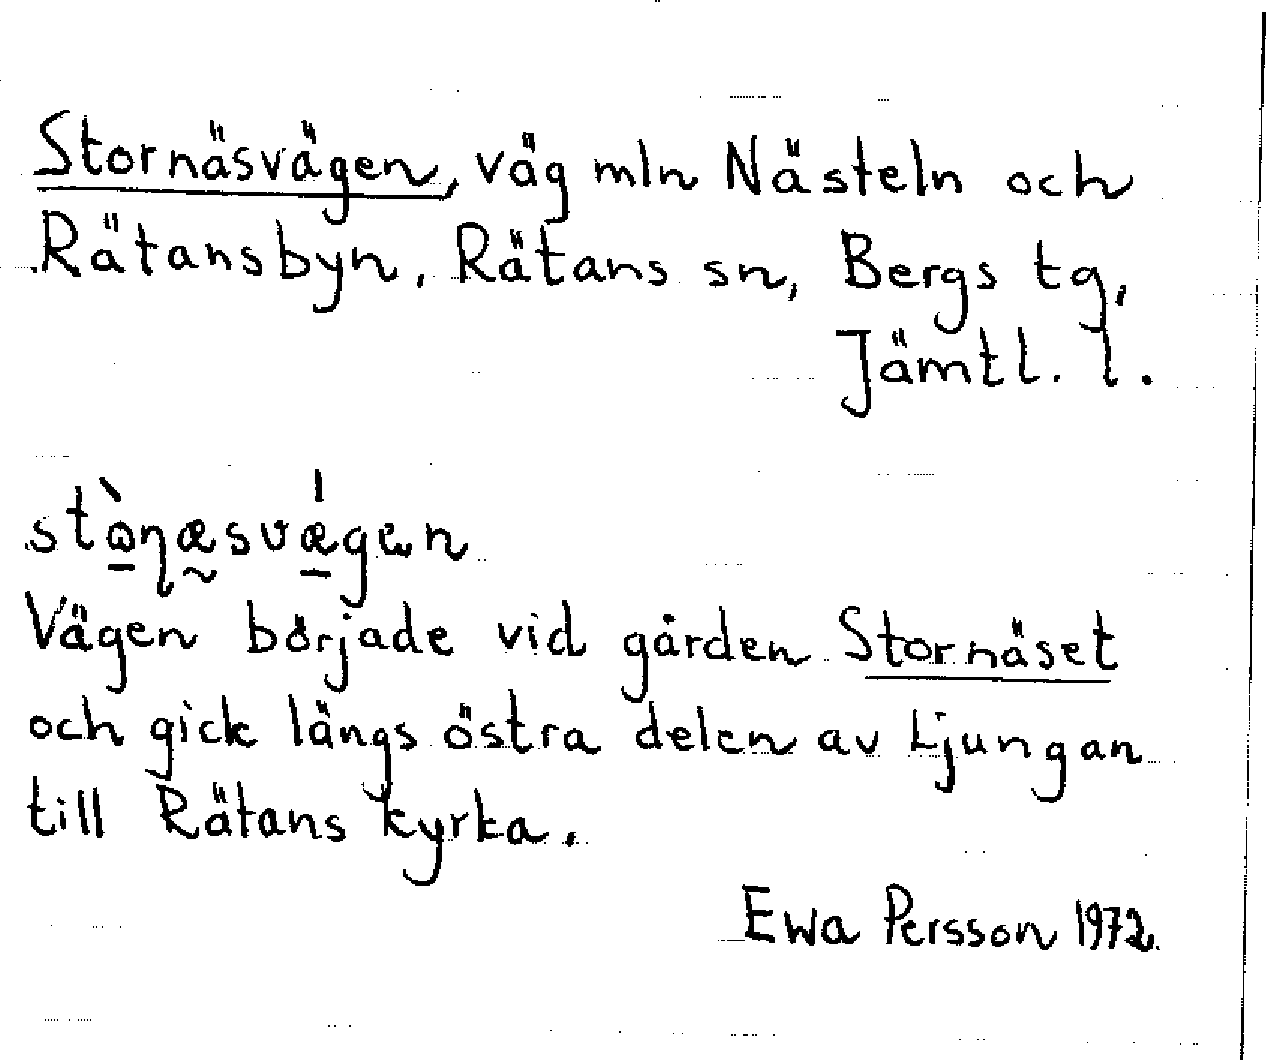 Stornäsvägen, väg mln Nästeln och
Rätansbyn, Rätans sn, Bergs tg,
Jämtl. l.
Vägen började vid gården Stornäset
och gick längs östra delen av Ljungan
till Rätans kyrka.
Ewa Persson 1972.